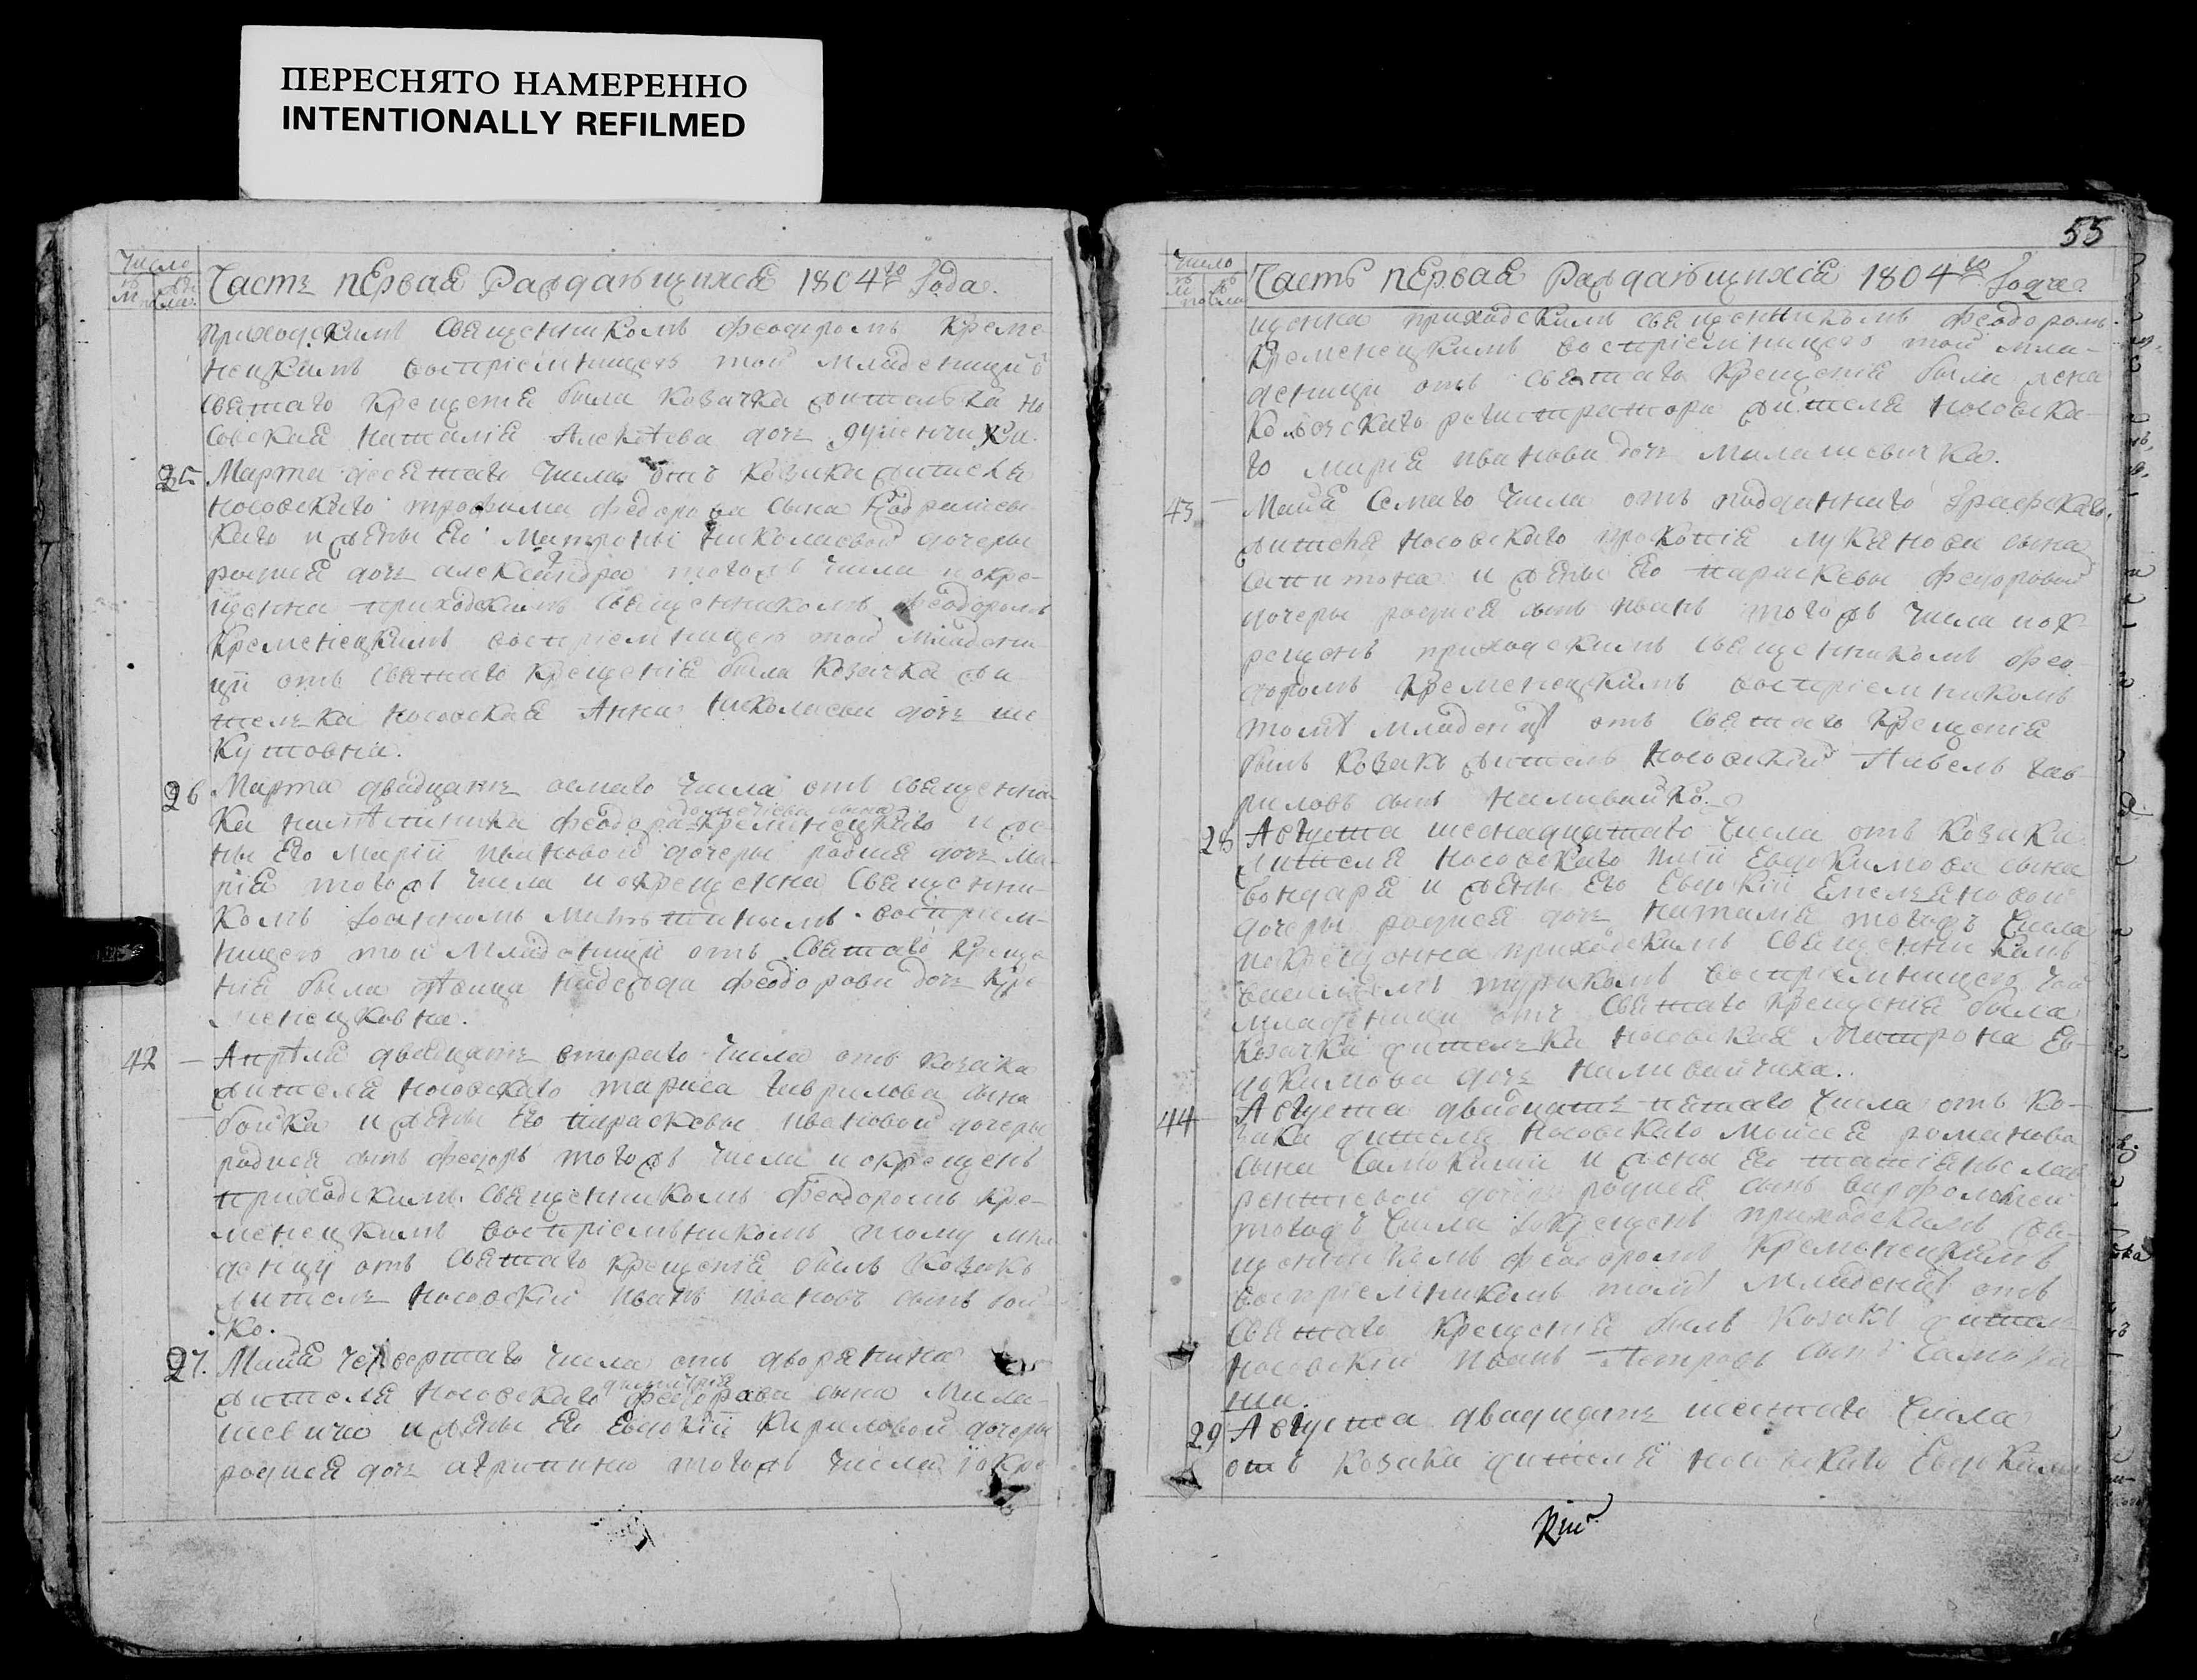 ПЕРЕСНЯТО НАМЕРЕННО
INTENTIONALLY REFILMED
Число
Часть первая Раждающихся 1804го Года.
приходскимъ Священникомъ Феодоромъ Креме-
нецкимъ восприемницею той младеницы
Святаго Крещения была Козачка жителька но
совская Наталия Алексеева дочь
25 Марта десятаго числа отъ Козака жителя
носовскаго трофима федорова сына
каго и жены Его Матроны николаевой дочеры
родися дочь александра того жъ числа и окре-
щенна приходскимъ Священникомъ Феодоромъ
Кременецкимъ восприемницею той младени-
цы отъ Святаго Крещения была Козачка жи-
телька носовская Анна Николаева дочь ше
Кутовна.
26 Марта двадцать осмаго числа отъ священни-
ка наместника Феодора Кременецкаго и же-
ны Его Марии ивановой дочеры родися дочь Ма-
рия того жъ числа и окрещенна Священни-
комъ Иоанномъ восприем-
ницею той Младеницы отъ Святаго Креще-
ния была девица надежда Феодорова дочь Кре
менецковна.
42 Апреля двадцать втораго числа отъ козака
жителя носовскаго тараса гаврилова сына
бойка и жены Его параскевы ивановой дочеры
родися сынъ Федоръ того жъ числа и окрещенъ
приходскимъ Священникомъ Феодоромъ Кре-
менецкимъ восприемникомъ тому мла
деницу отъ Святаго крещения былъ Козакъ
житель носовский иванъ ивановъ сынъ бой-
ко.
27. Майя четвертаго числа отъ дворянина
димитрия
жителя носовскаго федорова сына Мила-
шевича и жены Его Евдокии Кириловой дочеры
родися дочь агрипина того жъ числа и окре
55
Число
Часть первая Раждающихся 1804го Года
щенна приходскимъ священникомъ Феодоромъ
Кременецкимъ восприемницею той мла-
деницы отъ Святаго Крещения была жена
регистратора жителя носовска-
го Мария иванова дочь Милашевичка.
43 Майя Семаго числа отъ подданнаго Графскаго
жителя носовскаго прокопия лукянова сына
и жены Его параскевы федоровой
дочеры родися сынъ иванъ того жъ числа и ок-
рещенъ приходскимъ священникомъ Фео-
доромъ Кременецкимъ восприемникомъ
тому младеницу отъ Святаго Крещения
былъ Козакъ житель Носовский Павелъ гав-
риловъ сынъ наливайко.
28 Августа шеснадцатаго числа отъ козака
жителя носовскаго илии Евдокимова сына
бондаря и жены Его Евдокии Емельяновой
дочеры родися дочь наталия того жъ числа
и окрещенна приходскимъ Священникомъ
василиемъ туркомъ восприемницею той
младеницы отъ Святаго Крещения была
козачка жителька носовская Матрона Ев-
докимова дочь наливайчиха.
44 Августа двадцать пятаго числа отъ ко-
зака жителя носовскаго Мойсея романова
сына Самокиши и жены Его татияны лав
рентиевой дочеры родися сынъ варфоломей
того жъ числа и окрещенъ приходскимъ Свя-
щенникомъ Феодоромъ Кременецкимъ
восприемникомъ тому младеницу отъ
Святаго Крещения былъ козакъ житель
носовский иванъ Петровъ сынъ Самоки
ша.
29 Августа двадцать шестаго числа
отъ козака жителя носовскаго Евдокима